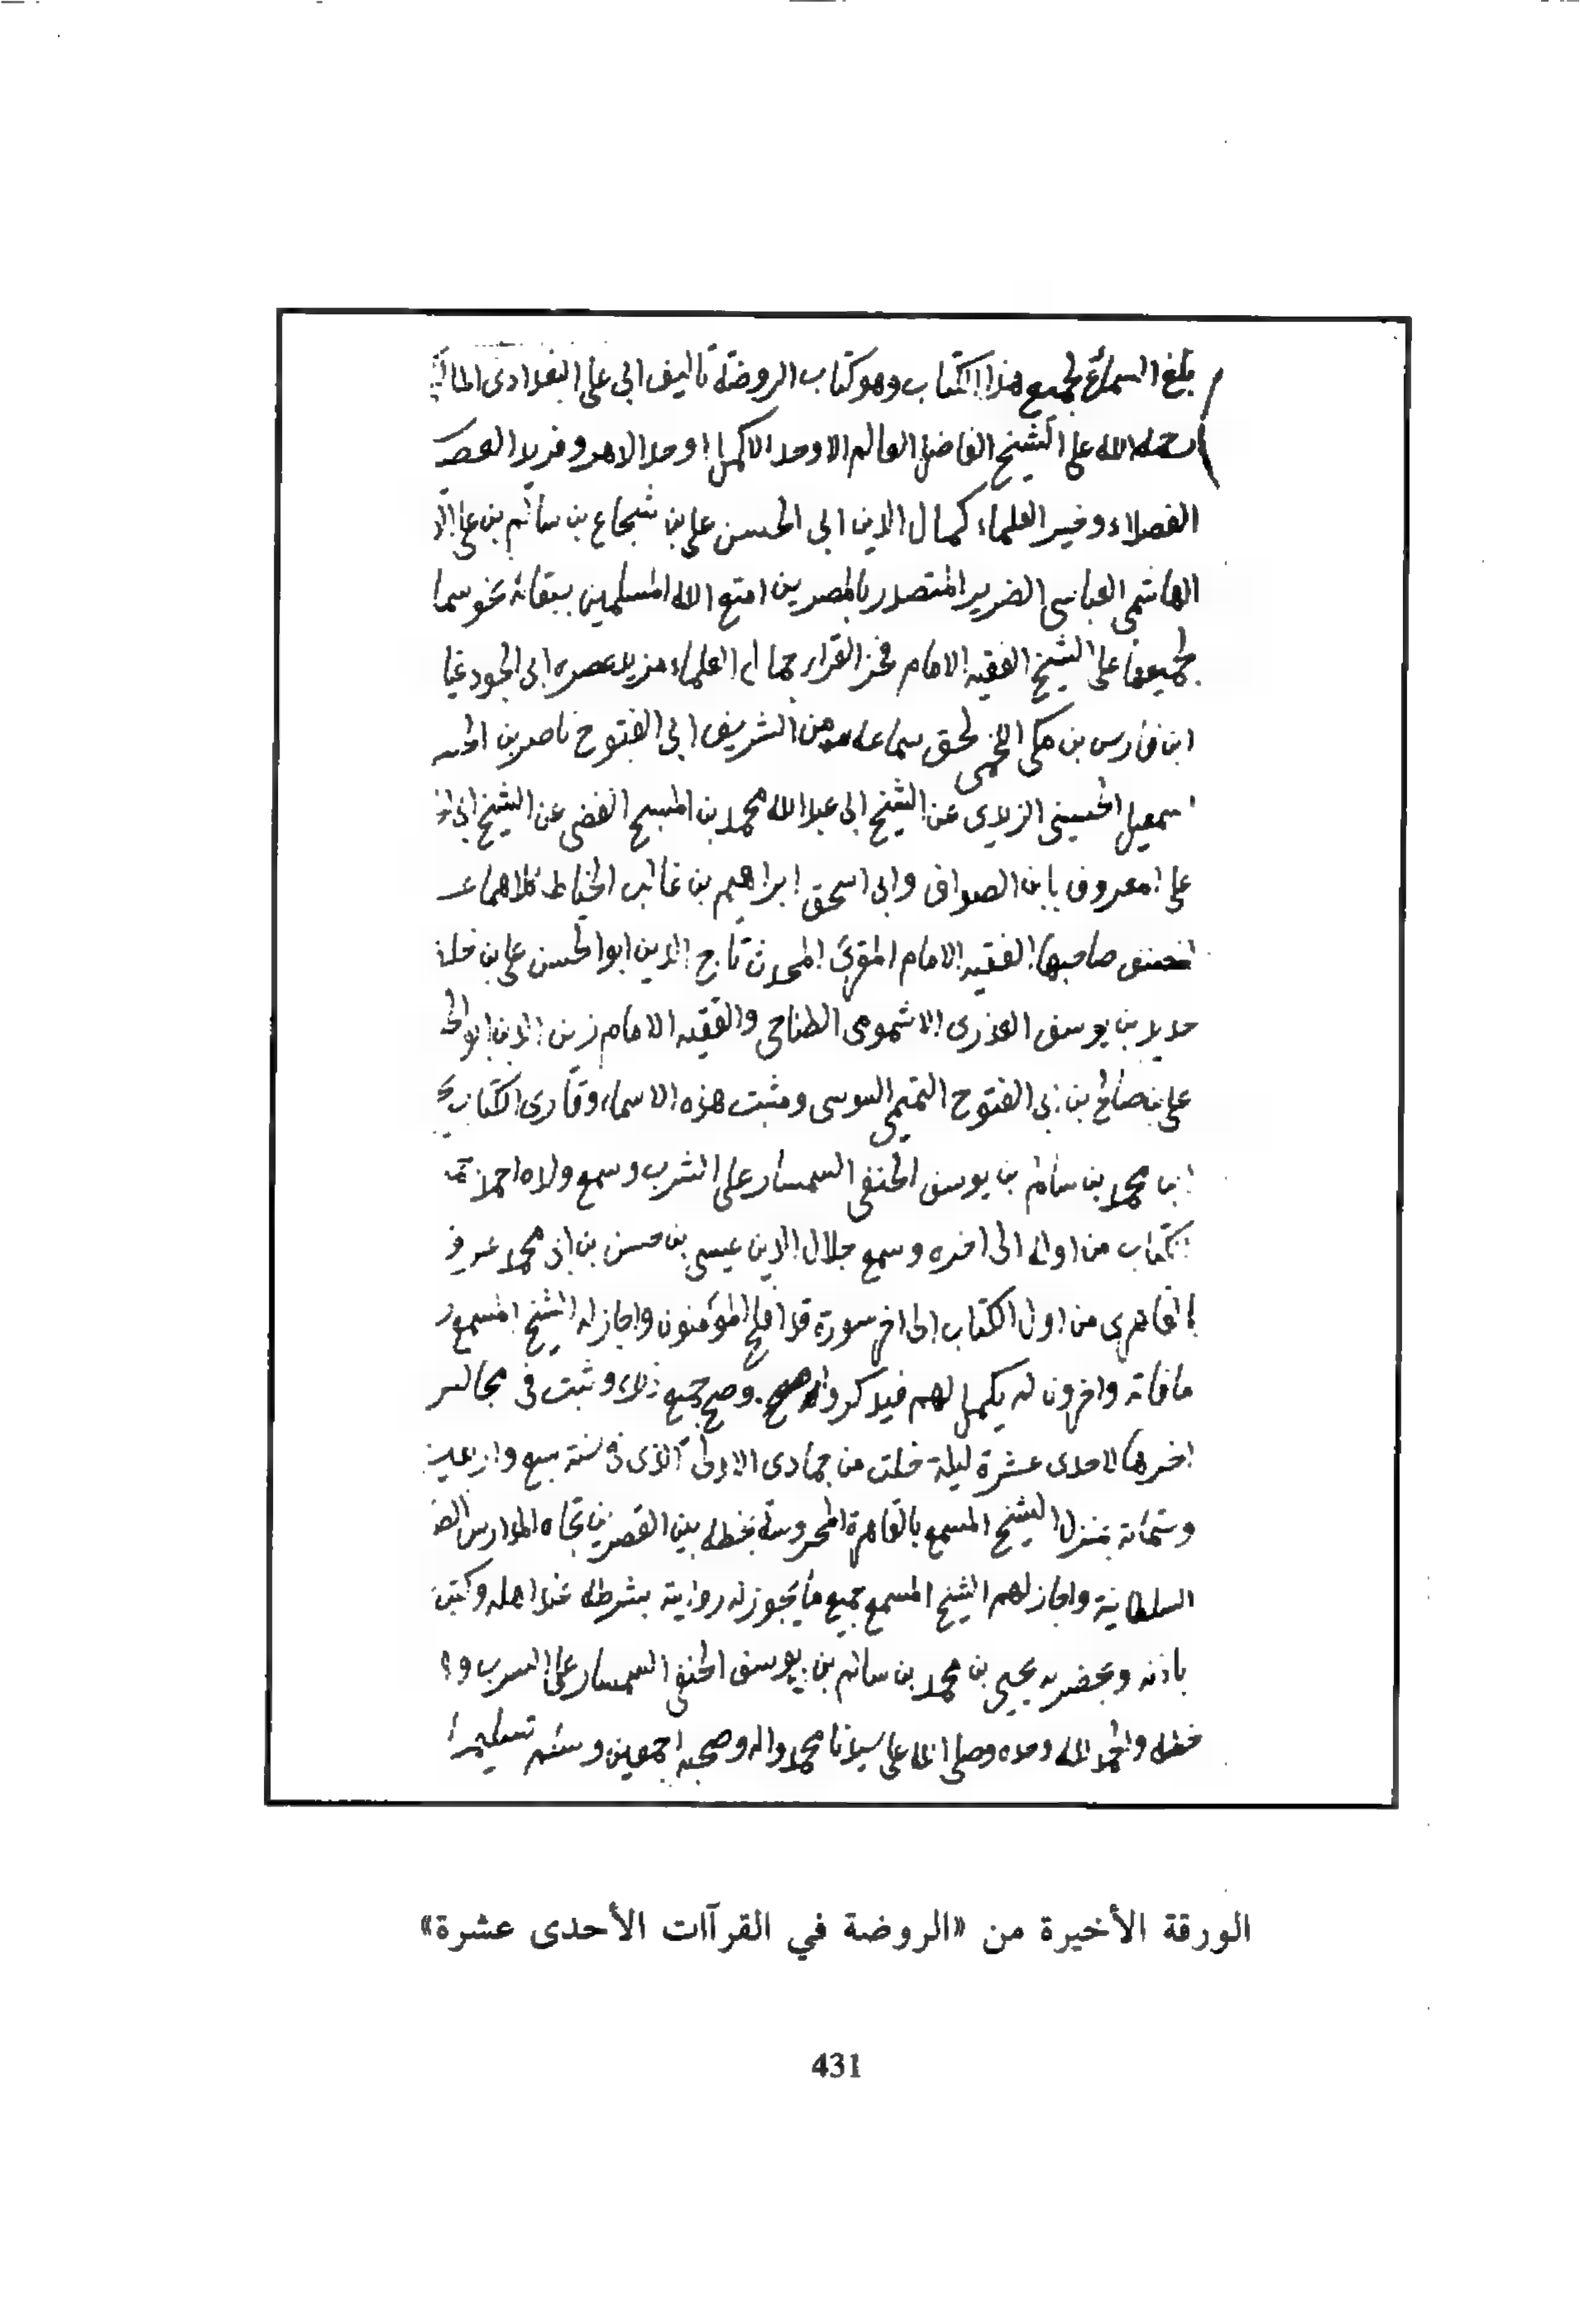 بلغ السماع لجميع هذا الكتاب وهو كتاب الروضة تاليف ابي علي البغدادي
رحمه الله على الشيخ الفاضل العالم الاوحد الاكمل اوحد الدهر وفريد العصر
الفضلاء وخير العلماء كمال الدين ابي الحسن علي بن شجاع بن سالم بن علي
الهاشمي العباسي الضرير المتصدر بالمصرين امتع الله المسلمين ببقائه بحق سما
لجميعها على الشيخ الفقيه الامام فخر القراء جمال العلماء فريد عصره ابي الجود غيا
ابن فارس بن مكي اللخمي بحق سماعه من الشريف ابي الفتوح ناصر بن
اسمعيل الحسيني الزيدي عن الشيخ ابي عبد الله محمد بن المسبح الفضي عن الشيخ
علي المعروف بابن الصواف وابي اسحق ابراهيم بن غالب الخياط كلاهما عـ
المصنف صاحبها الفقيه الامام المقرئ المحدث تاج الدين ابو الحسن علي بن
حديد بن يوسف العذري الاشمومي الطناحي والفقيه الامام زين الدين ابو
علي بن صالح بن ابي الفتوح التميمي السوسي ومثبت هذه الاسماء وقارئ الكتاب
ابن محمد بن سالم بن يوسف الحنفي السمسار على الشرب وسمع ولده احمد
الكتاب من اوله الى اخره وسمع جلال الدين عيسى بن حسن بن ابي محمد عرف
القاهري من اول الكتاب الى اخر سورة قد افلح المؤمنون واجاز له الشيخ المسمع
ما فاته واخرون لم يكمل لهم فيذكروا وصح جميع ذلك وثبت في مجالس
اخرها لاحدى عشرة ليلة خلت من جمادى الاولى الذي في سنة سبع واربعين
وستمائة بمنزل الشيخ المسمع بالقاهرة المحروسة بخط بين القصرين تجاه المدارس
السلطانية واجاز لهم الشيخ المسمع جميع ما يجوز له روايته بشرطه عند اهله وكتب
باذنه وبحضرته يحيى بن محمد بن سالم بن يوسف الحنفي السمسار على الشرب
خطه والحمد لله وحده وصلى الله على سيدنا محمد واله وصحبه اجمعين وسلم تسليما
الورقة الأخيرة من «الروضة في القرآات الأحدى عشرة»
431